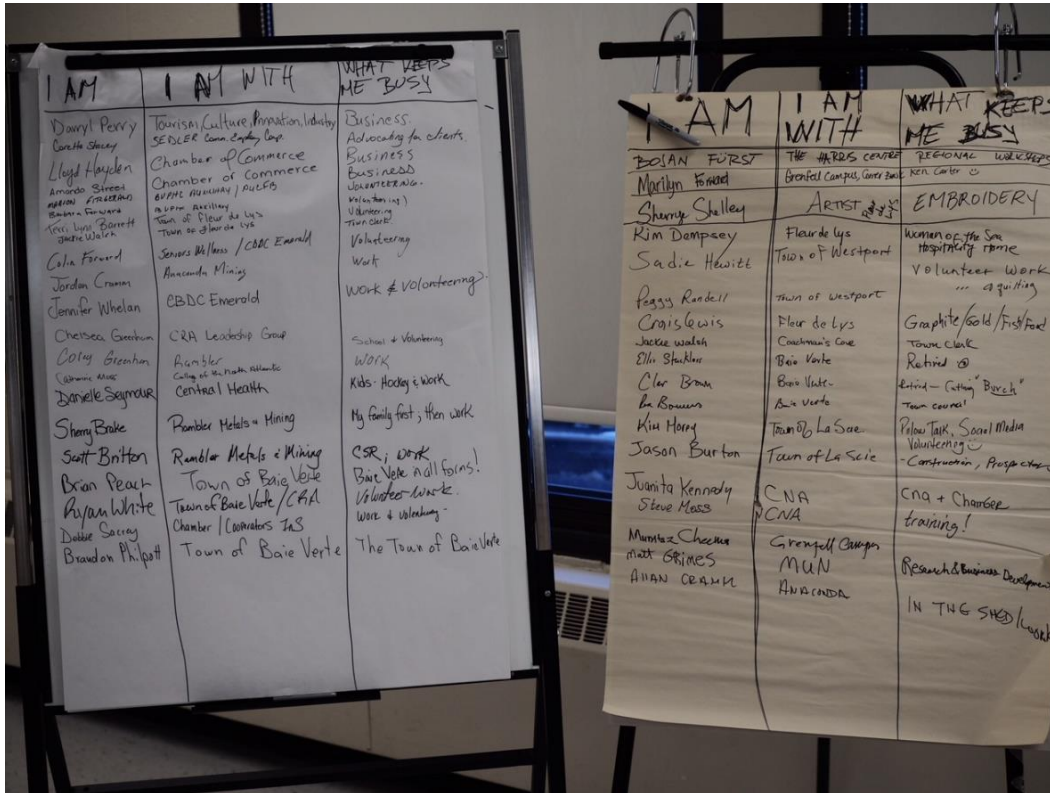 I AM I AM WITH WHAT KEEPS ME BUSY
Darryl Perry Tourism, Culture, Innovation, Industry Business.
Stacey SEDLER Comm. Corp. Advocating for clients.
Lloyd Hayden Chamber of Commerce Business
Amanda Street Chamber of Commerce Business
MARION FITZGERALD AUXILIARY VOLUNTEERING.
Barbara Forward Auxiliary Volunteering
Terri Lynn Barrett Town of Fleur de Lys Volunteering
Jackie Walsh Town of Fleur de Lys Town Clerk
Colin Forward Seniors Wellness / CBDC Emerald Volunteering
Jordan Cramm Anaconda Mining Work
Jennifer Whelan CBDC Emerald Work & Volunteering
Chelsea Greenham CRA Leadership Group School & Volunteering
Corey Greenham Rambler WORK
College of the North Atlantic
Danielle Seymour Central Health Kids - Hockey & Work
Sherry Brake Rambler Metals & Mining My family first, then work
Scott Britton Rambler Metals & Mining CSR, work
Brian Peach Town of Baie Verte Baie Verte in all forms!
Ryan White Town of Baie Verte / CRA Volunteer Work.
Debbie Chamber / Cooperators INS Work & volunteering
Brandon Philpott Town of Baie Verte The Town of Baie Verte
I AM I AM WITH WHAT KEEPS ME BUSY
BOJAN FÜRST THE HARRIS CENTRE REGIONAL WORKSHOPS
Marilyn Forward Grenfell Campus, Corner Brook Ken Carter ☺
Sherrye Shelley ARTIST EMBROIDERY
Kim Dempsey Fleur de Lys Woman of the Sea Hospitality Home
Sadie Hewitt Town of Westport Volunteer Work
quilting
Peggy Randell Town of Westport
Craig Lewis Fleur de Lys Graphite/Gold/Fish/Food
Jackie Walsh Coachman's Cove Town Clerk
Baie Verte Retired ☺
Brown Baie Verte Retired - Cutting "Burch"
Bowers Baie Verte Town council
Kim Morey Town of La Scie Pillow Talk, Social Media
Volunteering ☺
Jason Burton Town of La Scie - Construction,
Juanita Kennedy CNA CNA +
Steve Moss CNA training!
Mumtaz Cheema Grenfell Campus
Matt GRIMES MUN Research & Business Development
Allan CRAMM ANACONDA IN THE SHED/